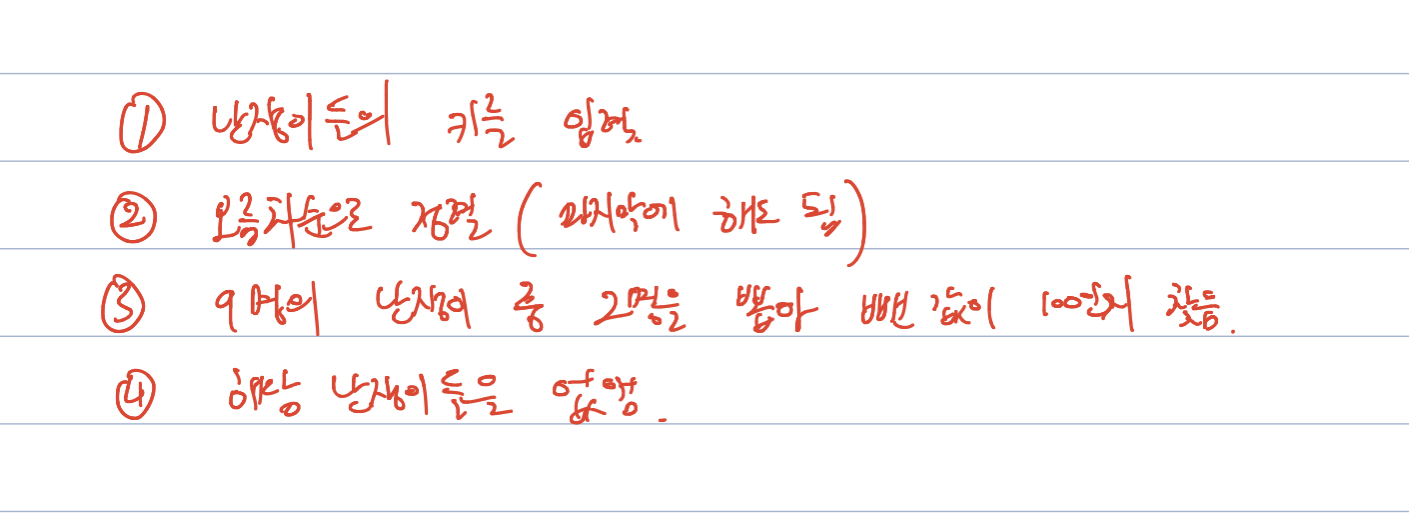 ① 난쟁이들의 키를 입력.
② 오름차순으로 정렬 ( 마지막에 해도 됨 )
③ 9명의 난쟁이 중 2명을 뽑아 뺀 값이 100인지 찾음.
④ 해당 난쟁이들을 없앰.